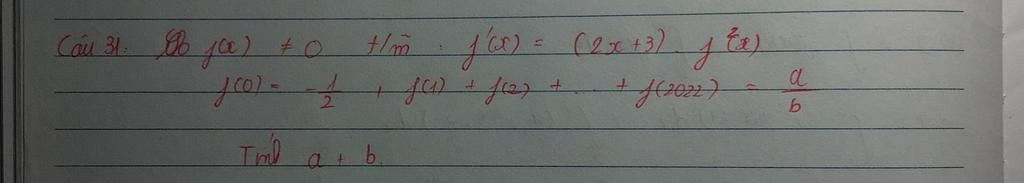 Câu 31. f(x) ≠ 0 t/m . f'(x) = (2x+3). f²(x)
f(0) = -1/2 , f(1) + f(2) + ... + f(2022) = a/b
Tính a + b.